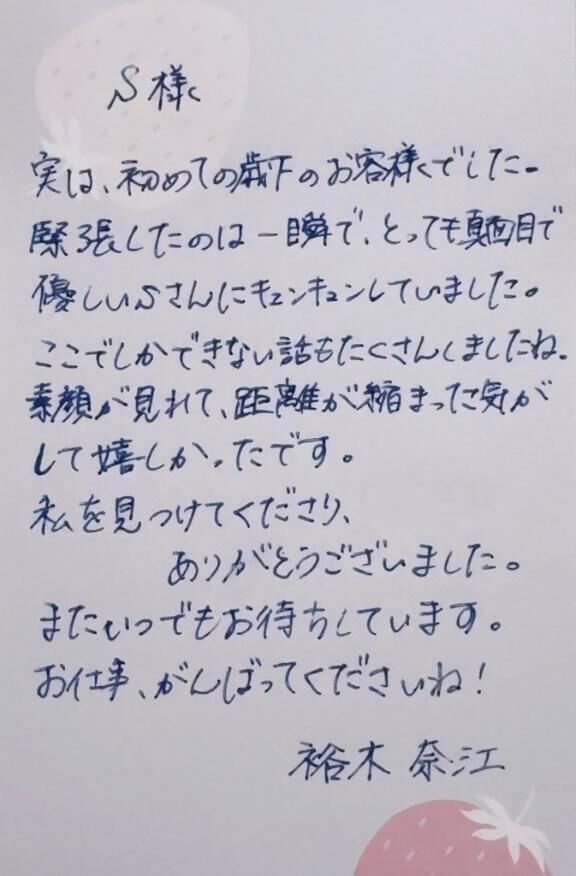 S様
実は、初めての歳下のお客様でした。
緊張したのは一瞬で、とっても真面目で
優しいSさんにキュンキュンしていました。
ここでしかできない話もたくさんしましたね。
素顔が見れて、距離が縮まった気が
して嬉しかったです。
私を見つけてくださり、
ありがとうございました。
またいつでもお待ちしています。
お仕事、がんばってくださいね!
裕木 奈江